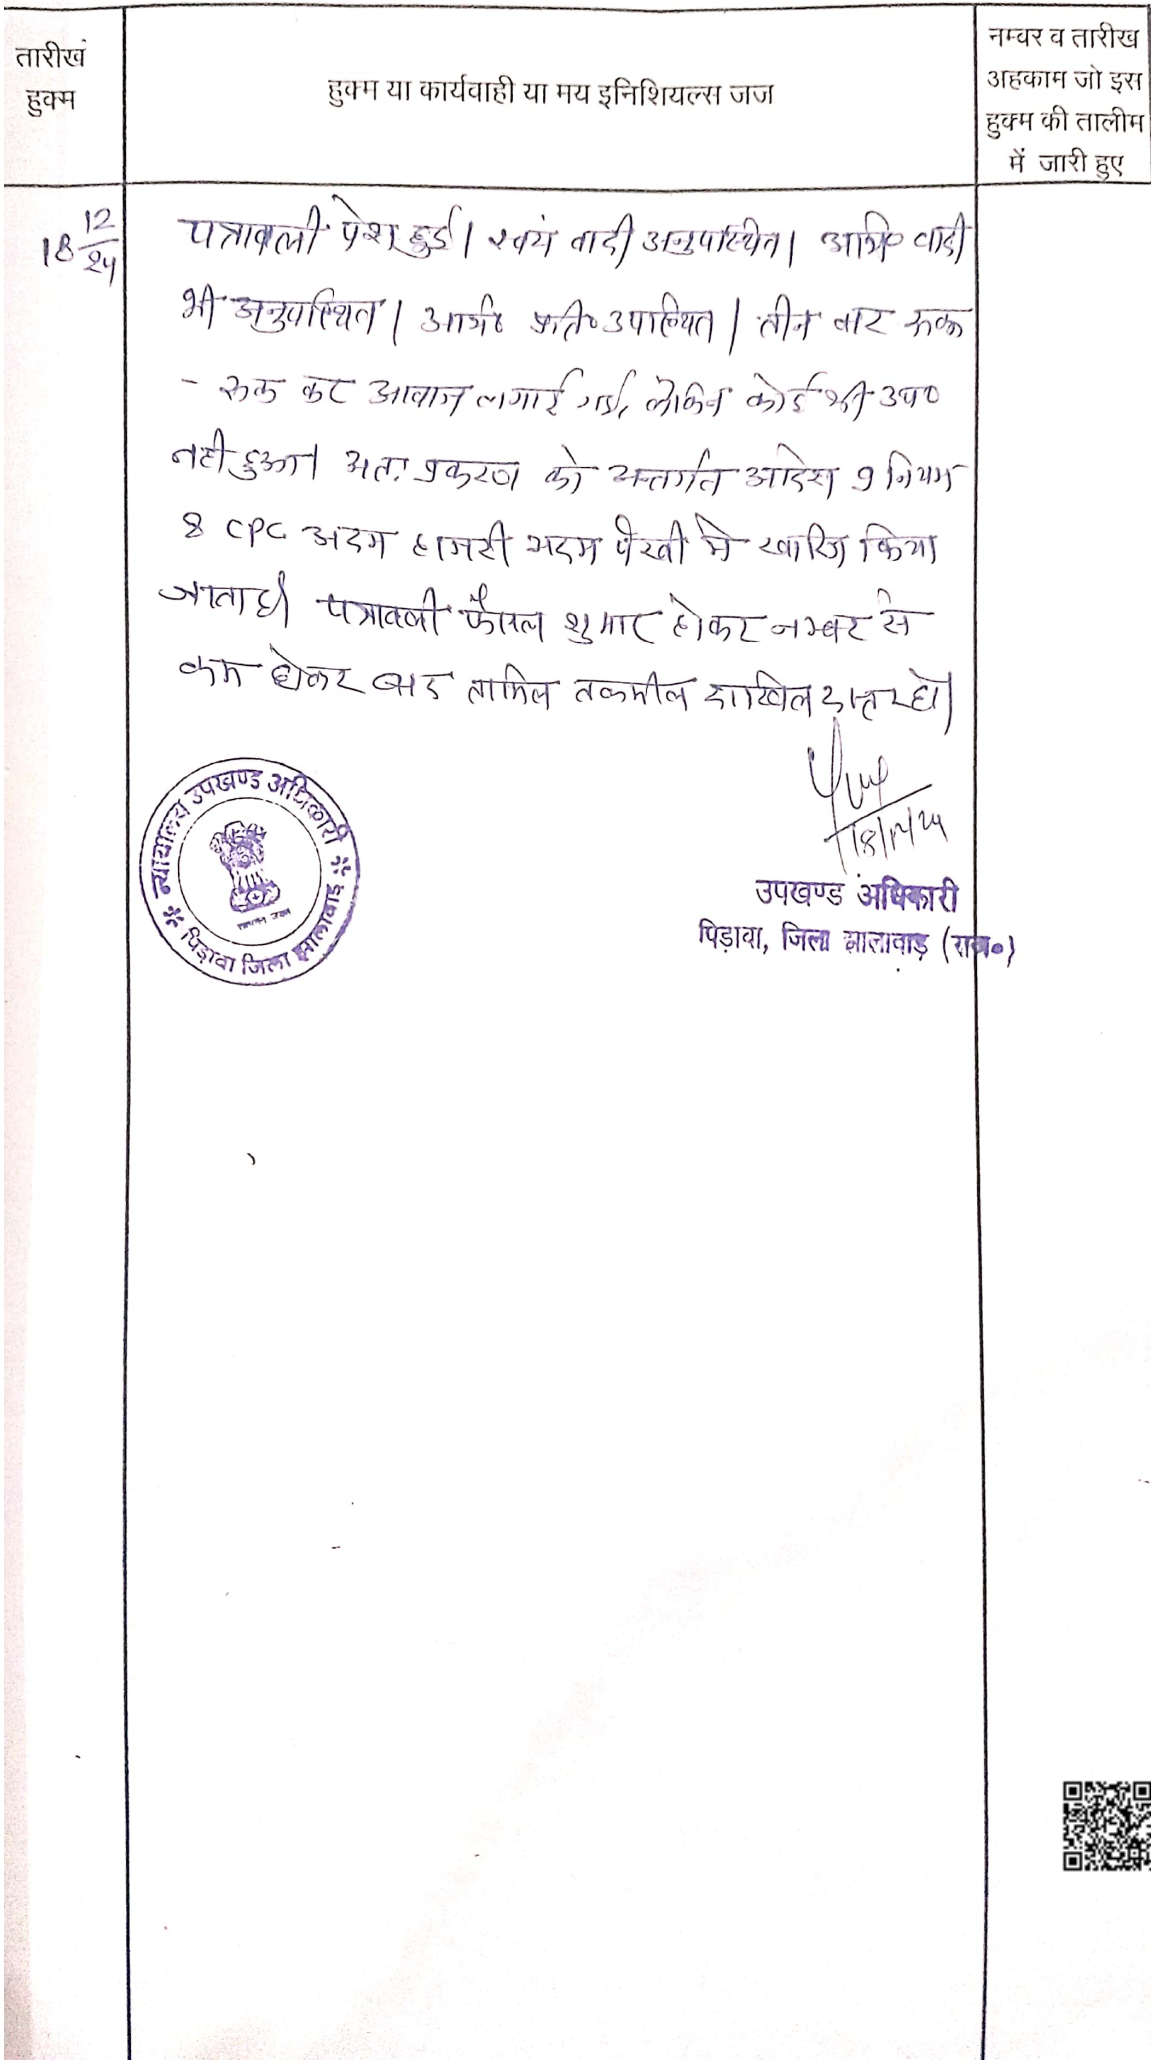 तारीख
हुक्म
हुक्म या कार्यवाही या मय इनिशियल्स जज
नम्वर व तारीख
अहकाम जो इस
हुक्म की तालीम
में जारी हुए
18 12/24
पत्रावली पेश हुई। स्वयं वादी अनुपस्थित। अभि० वादी
भी अनुपस्थित। अभि० प्रति० उपस्थित। तीन बार रूक
- रूक कर आवाज लगाई गई, लेकिन कोई भी उप०
नही हुआ। अतः प्रकरण को अन्तर्गत आदेश 9 नियम
8 CPC अदम हाजरी अदम पैरवी मे खारिज किया
जाता है। पत्रावली फैसल शुमार होकर नम्बर से
कम होकर बाद तामिल तकमील दाखिल दफ्तर हो।
18/12/24
उपखण्ड अधिकारी
पिड़ावा, जिला झालावाड़ (राज०)
न्यायालय उपखण्ड अधिकारी
पिड़ावा जिला झालावाड़